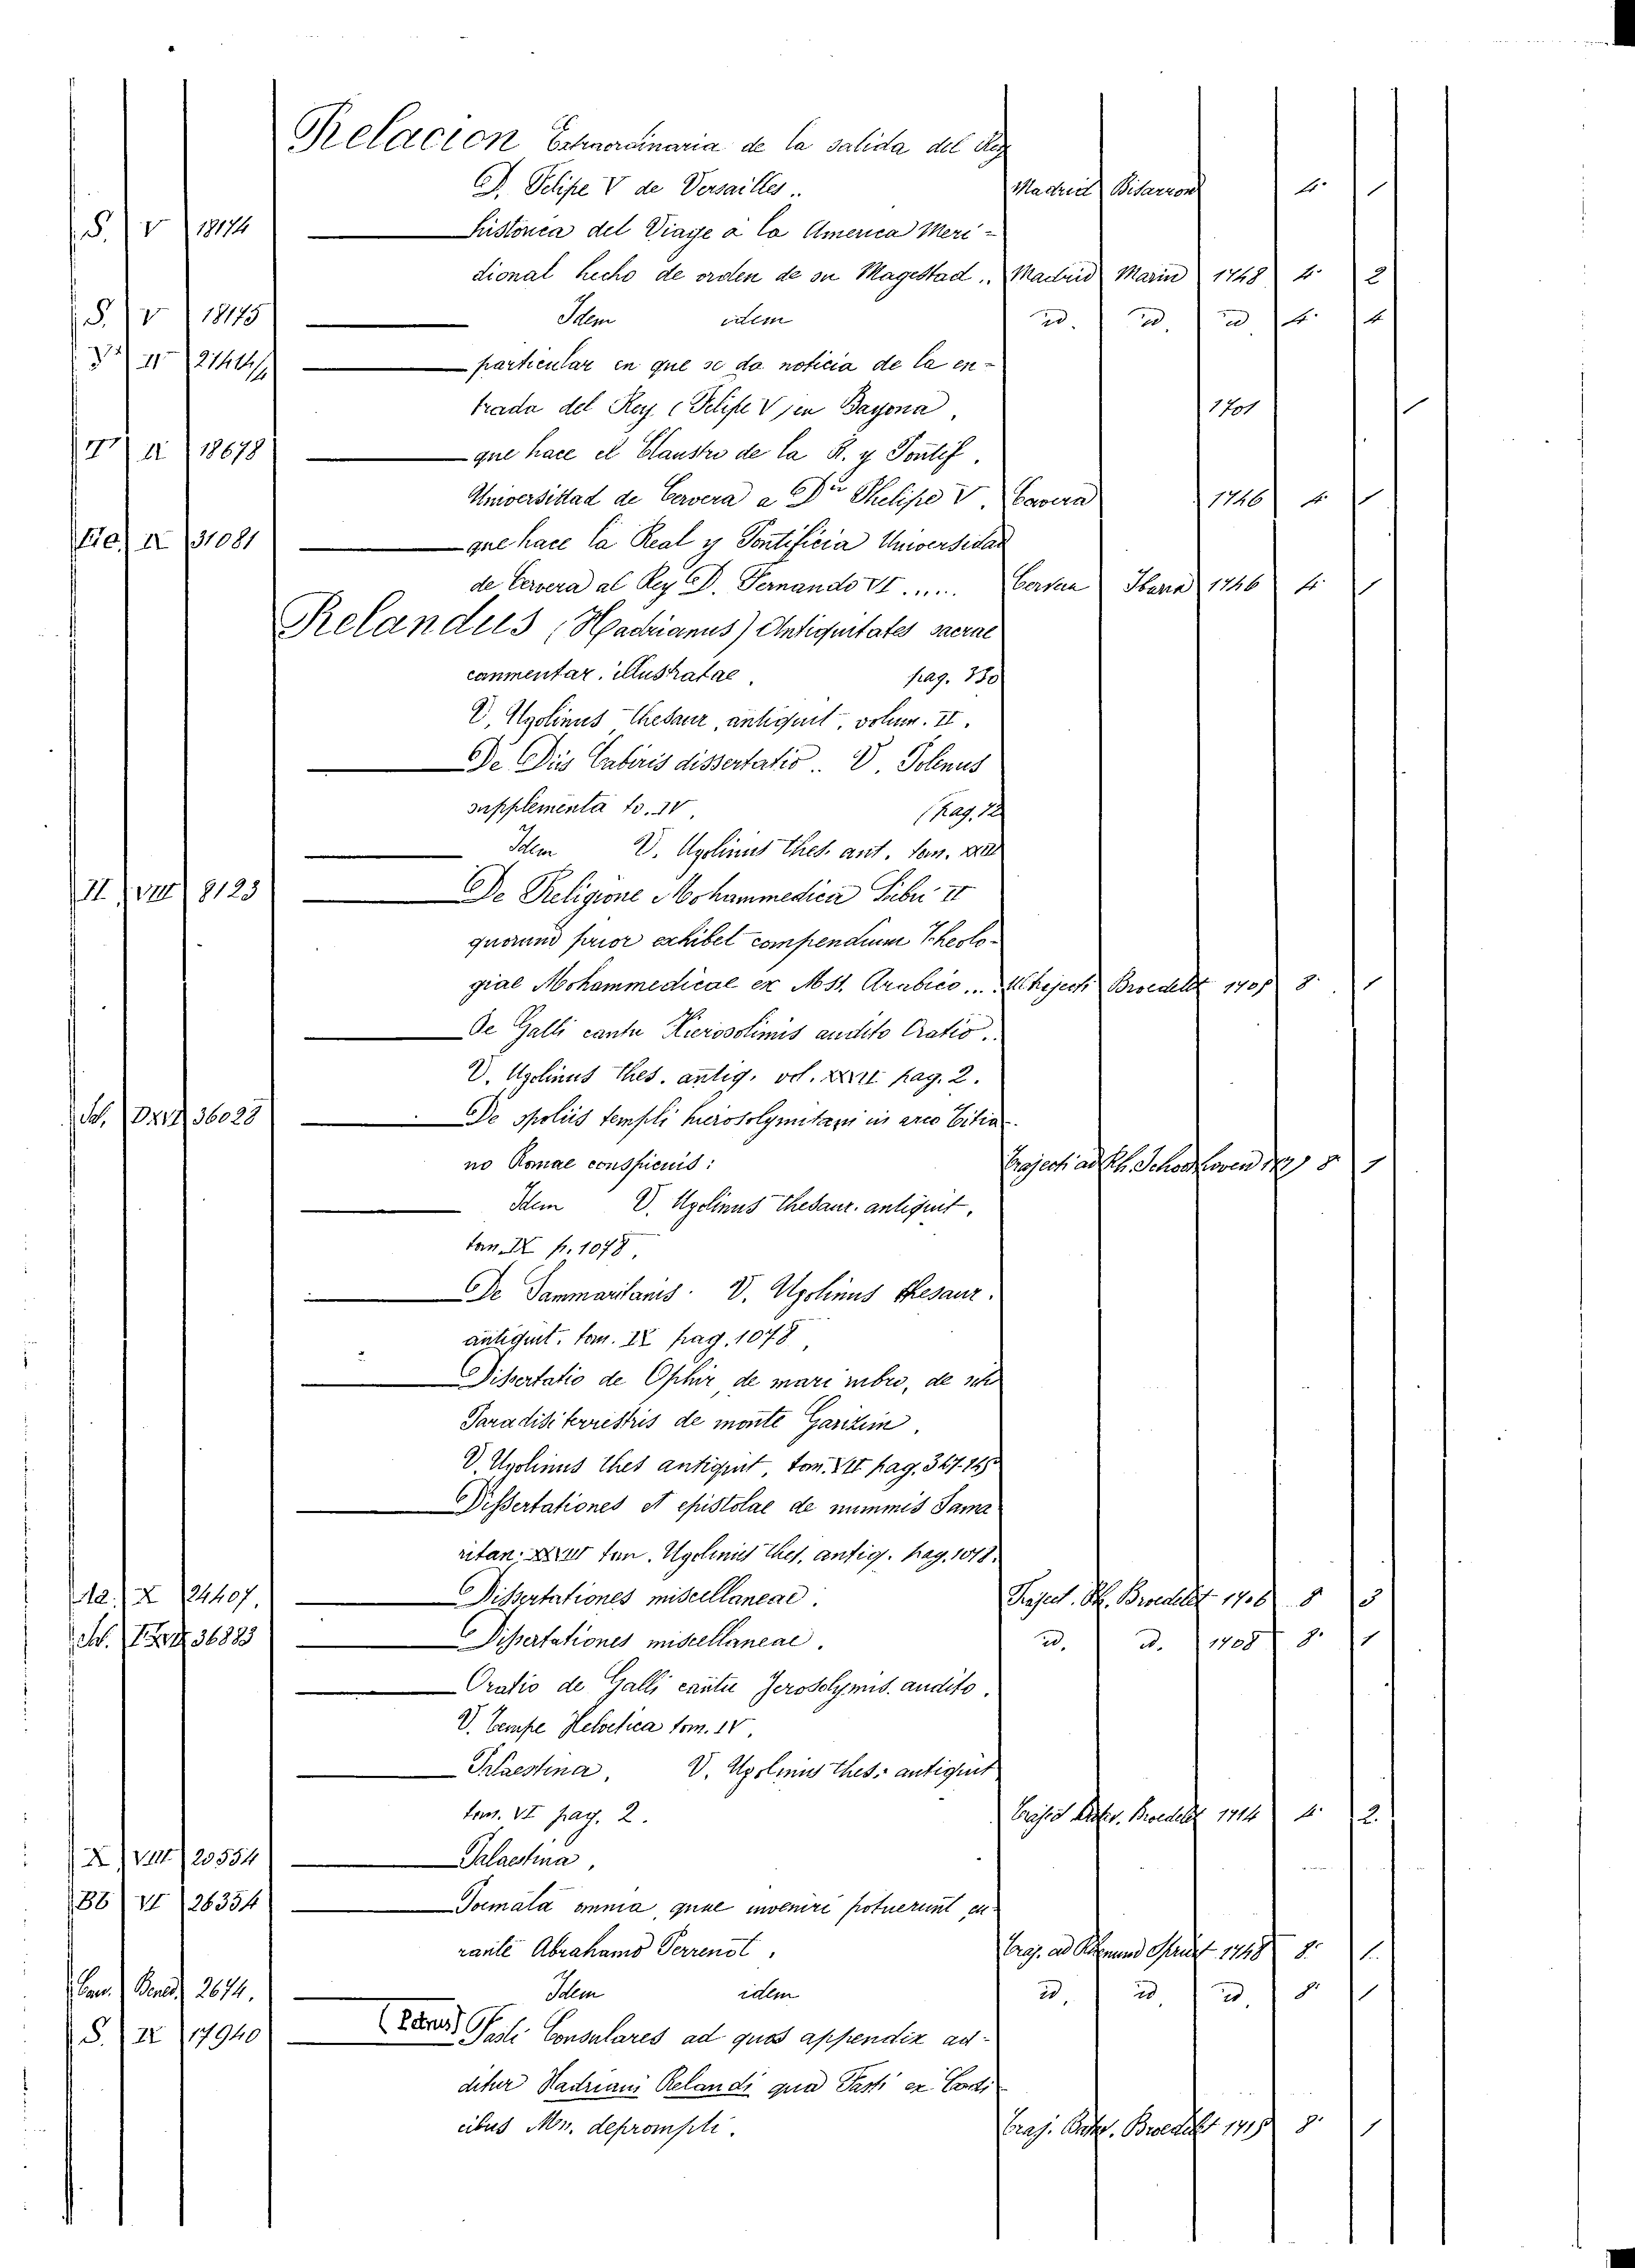 Relacion Extraordinaria de la salida del Rey
D. Felipe V de Versailles.. Madrid Bitarron 4. 1
S. V 18174 historica del Viage à la America Meri-
dional hecho de orden de su Magestad.. Madrid Marin 1748 4. 2
S. V 18175 Idem idem id. id. id 4. 4
II 21414 particular en que se da noticia de la en-
trada del Rey (Felipe V) en Bayona, 1701 1
II 18678 que hace el Claustro de la R. y Pontif.
Universittad de Cervera a Dn Phelipe V. Cavera 1746 4. 1
IX 31081 que hace la Real y Pontificia Universidad
de Cervera al Rey D. Fernando VI...... Cervera Ibarra 1746 4. 1
Relandus (Hadrianus) Antiquitates sacrae
conmentar. illustratae. pag. 380
V. Ugolinus Thesaur. antiquit. volum. II.
De Diis Cabiris dissertatio.. V. Polenus
supplementa to. IV. (Pag. 72
Idem V. Ugolinus Thes. ant. tom.
II VIII 8123 De Religione Mohammedica Libri II
quorum prior exhibet compendium Theolo-
giae Mohammedicae ex Mst. Arabico... Trajecti Broedelet 1705 8. 1
De Galli cantu Hierosolimis audito Oratio.
V. Ugolinus Thes. antiq. vol. pag. 2.
36028 De spoliis templi hierosolymitani in arco Titia-
no Romae conspicuis: Trajecti ad Rh. Schoonhoven 8 1
Idem V. Ugolinus Thesaur. antiquit.
tom. IX p. 1078.
De Sammaritanis. V. Ugolinus thesaur.
antiquit. tom. IX pag. 1078,
Dissertatio de Ophir, de mari rubro, de situ
Paradisi terrestris de monte Garizim.
V. Ugolinus Thes antiquit, tom. VII pag. 367.
Dissertationes et epistolae de nummis Sama
ritan. tom. Ugolinus Thes. antiq. pag. 1018.
X 24407. Dissertationes miscellaneae. Traject. Rh. Broedelet 1706 8 3
36883 Dissertationes miscellaneae. id. id. 1708 8. 1
Oratio de Galli cantu Jerosolymis. audito.
V. Tempe Helvetica tom. IV.
Palaestina. V. Ugolinus Thes. antiquit
tom. VI pag. 2. Broedelet 1714 4. 2.
X VIII. 20554 Palaestina,
BB VI 26354 Poemata omnia, quae inveniri potuerunt cu-
rante Abrahamo Perrenot. Traj. ad Rhenum Spruit 1748 8. 1.
Bened. 2674. Idem idem id, id, id. 8. 1
S. IX 17940 (Petrus) Fasti Consulares ad quos appendix ad-
ditur Hadriani Relandi qua Fasti ex Codi-
cibus Mn. deprompti. Traj. Broedelet 1715 8. 1